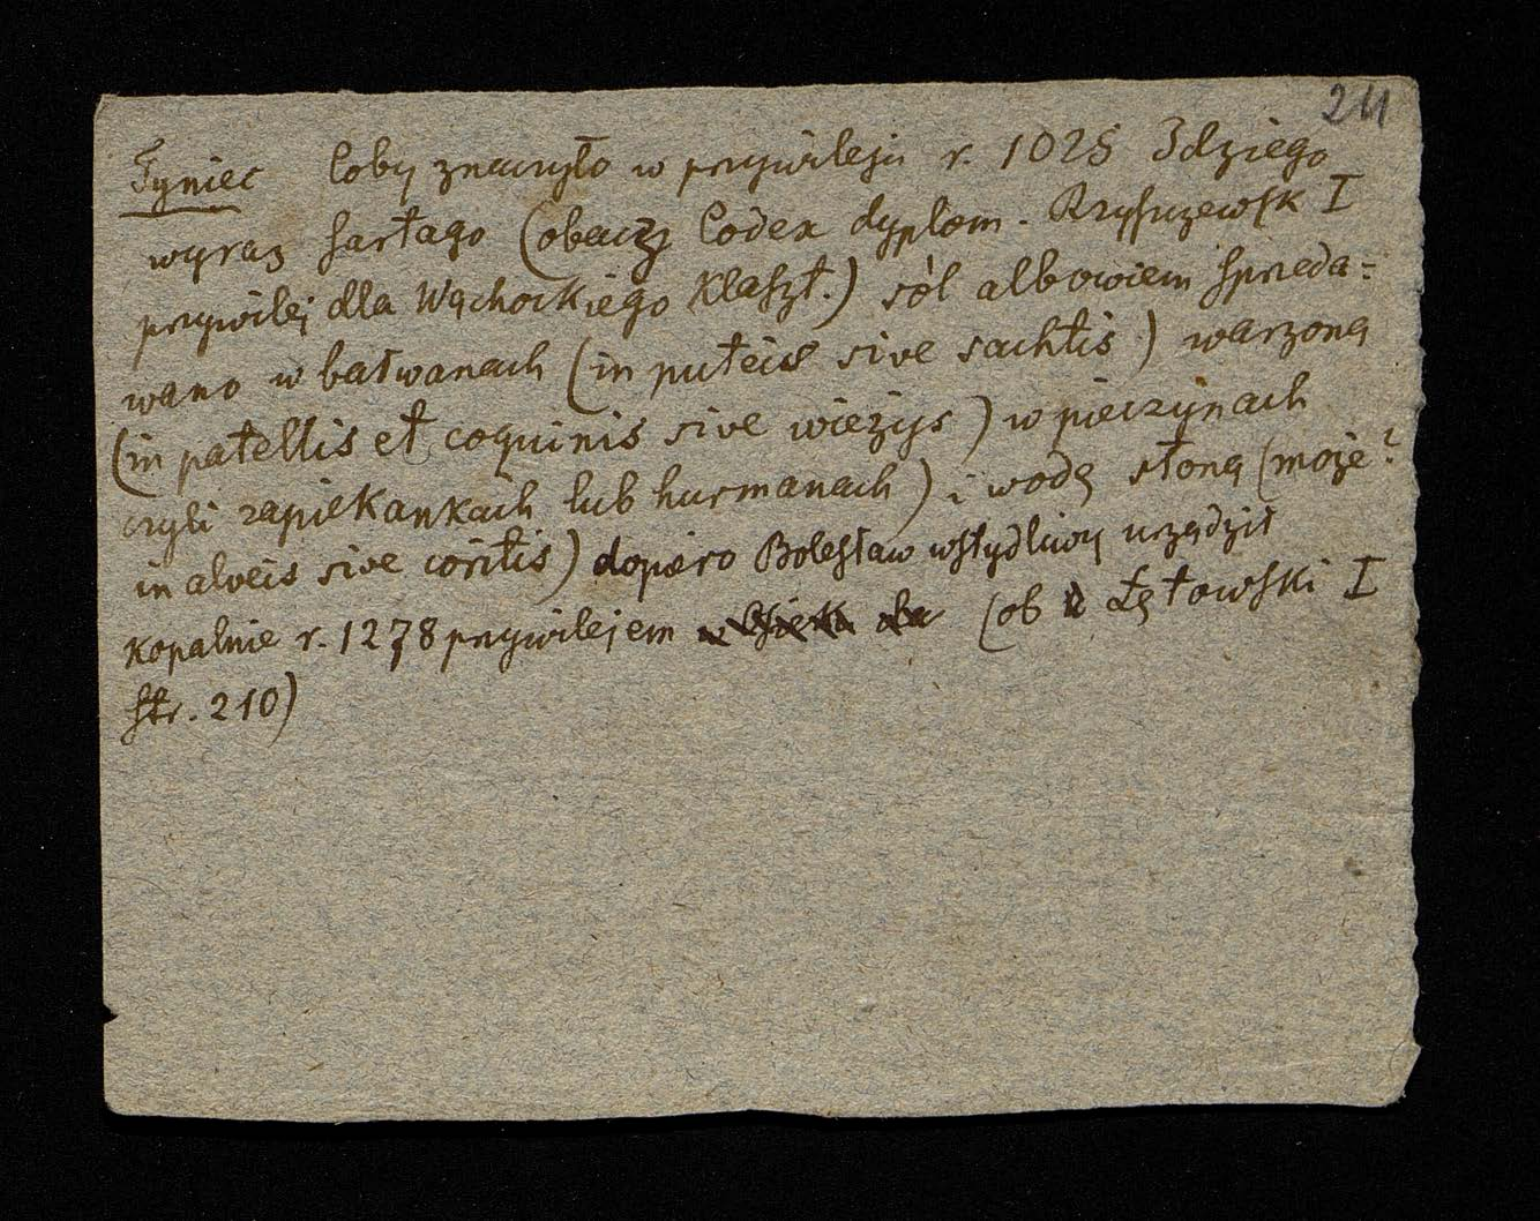 211
Tyniec Coby znaczyło w przywileju r. 1025 Idziego
wyraz sartago (obacz Codex dyplom. Rzyszczewsk I
przywilej dla Wąchockiego Klaszt.) sól albowiem sprzeda=
wano w bałwanach (in puteis sive sachtis) warzoną
(in patellis et coquinis sive wieżys) w pieczynach
czyli zapiekankach lub hurmanach) i wodę słoną (może?
in alveis sive coritis) dopiero Bolesław wstydliwy urządził
kopalnie r. 1278 przywilejem (ob Łętowski I
str. 210)